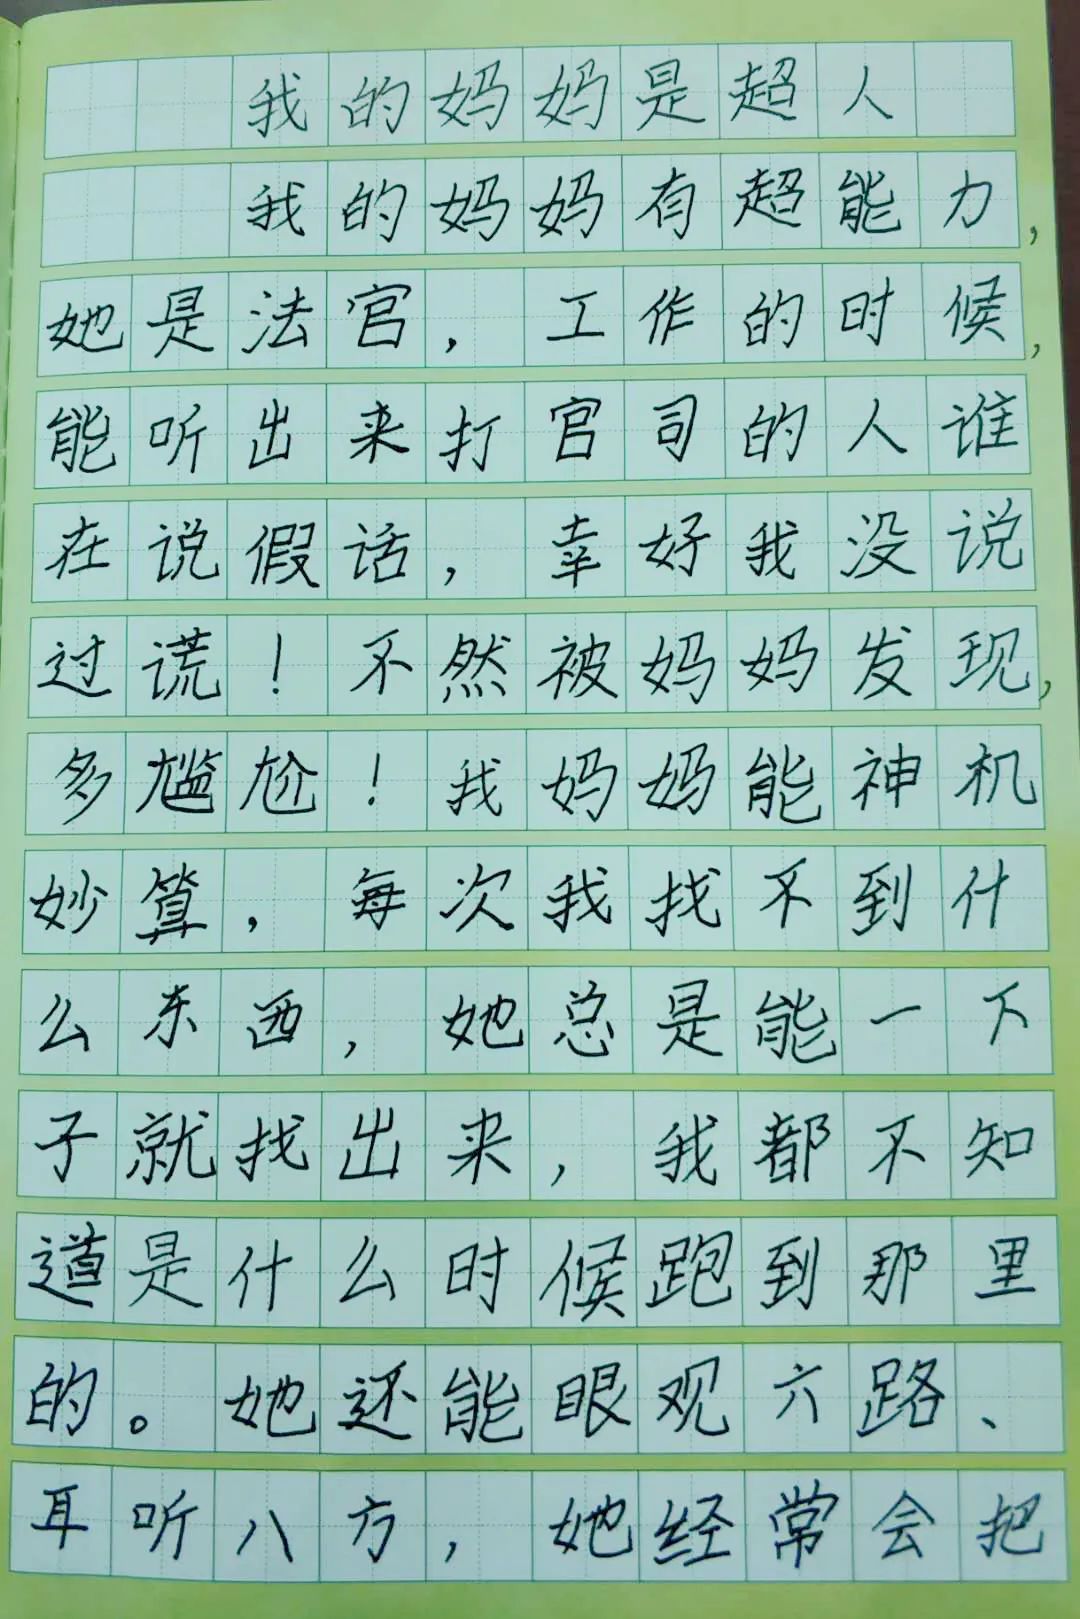 我的妈妈是超人
我的妈妈有超能力,
她是法官,工作的时候,
能听出来打官司的人谁
在说假话,幸好我没说
过谎!不然被妈妈发现,
多尴尬!我妈妈能神机
妙算,每次我找不到什
么东西,她总是能一下
子就找出来,我都不知
道是什么时候跑到那里
的。她还能眼观六路、
耳听八方,她经常会把